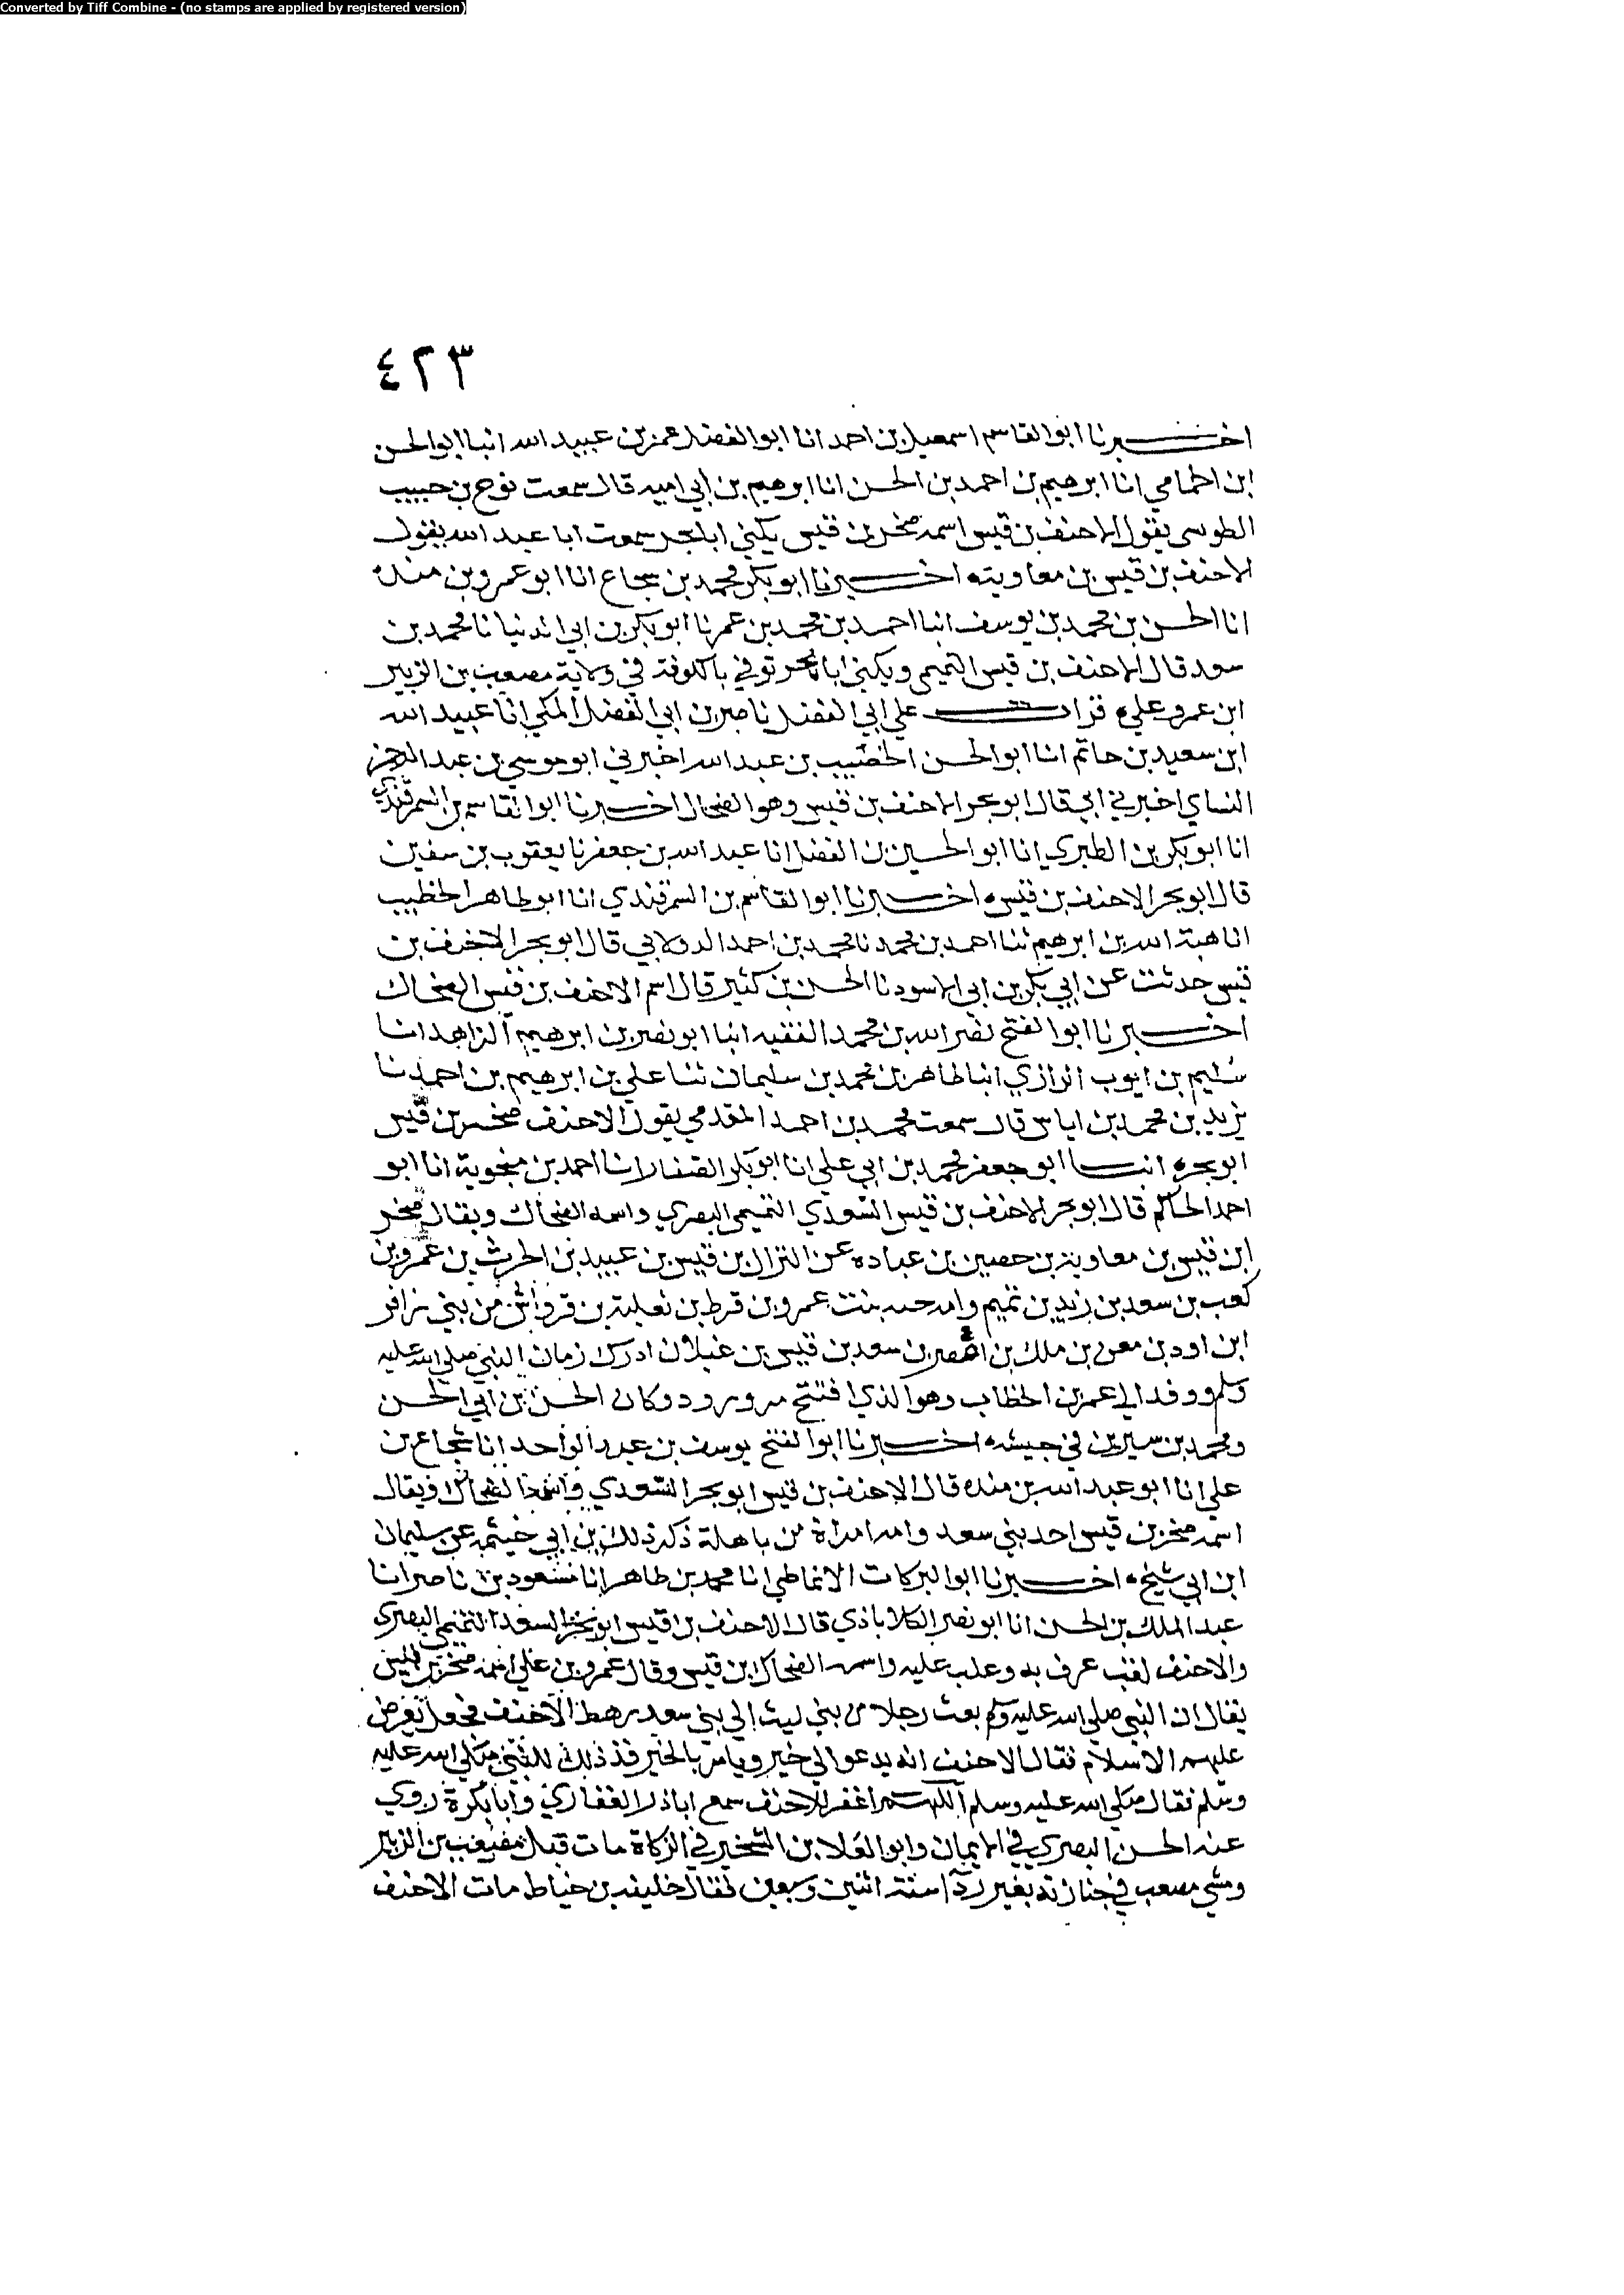 Converted by Tiff Combine - (no stamps are applied by registered version)
٤٢٣
اخبرنا ابو القاسم اسمعيل بن احمد انا ابو الفضل عمر بن عبيد الله انبا ابو الحسن
ابن الحمامي انا ابرهيم بن احمد بن الحسن انا ابرهيم بن ابي اميه قال سمعت نوح بن حبيب
الطوسى يقول الاحنف بن قيس اسمه صخر بن قيس يكنى ابا بحر سمعت ابا عبد الله يقول
الاحنف بن قيس بن معاويته اخبرنا ابو بكر محمد بن شجاع انا ابو عمرو بن منده
انا الحسن بن محمد بن يوسف انبا احمد بن محمد بن عمر نا ابو بكر بن ابي الدنيا نا محمد بن
سعد قال الاحنف بن قيس التميمى ويكنى ابا بحر توفي بالكوفة في ولاية مصعب بن الزبير
ابن عمرو عليه قرات على ابي الفضل ناصر بن ابي الفضل المكي انا عبيد الله
ابن سعيد بن حاتم انا ابو الحسن الخصيب بن عبد الله اخبرني ابو موسى بن عبد الرحمن
النساي اخبرني ابي قال ابو بحر الاحنف بن قيس وهو الضحاك اخبرنا ابو القاسم بن السمرقندي
انا ابو بكر بن الطبري انا ابو الحسين بن الفضل انا عبد الله بن جعفر نا يعقوب بن سفين
قال ابو بحر الاحنف بن قيس اخبرنا ابو القاسم بن السمرقندي انا ابو طاهر الخطيب
انا هبة الله بن ابرهيم ثنا احمد بن محمد نا محمد بن احمد الدولابي قال ابو بحر الاحنف بن
قيس حدثت عن ابي بكر بن ابي الاسود نا الحسن بن كثير قال اسم الاحنف بن قيس الضحاك
اخبرنا ابو الفتح نصر الله بن محمد الفقيه انبا ابو نصر بن ابرهيم الزاهد انا
سليم بن ايوب الرازي انبا طاهر بن محمد بن سليمان ثنا علي بن ابرهيم بن احمد نا
يزيد بن محمد بن اياس قال سمعت محمد بن احمد المقدمي يقول الاحنف صخر بن قيس
ابو بحر انبا ابو جعفر محمد بن ابي علي انا ابو بكر الصفار انا احمد بن منجوية انا ابو
احمد الحاكم قال ابو بحر الاحنف بن قيس السعدي التميمي البصري واسمه الضحاك ويقال صخر
ابن قيس بن معاوية بن حصين بن عباده عن النزال بن قيس بن عبيد بن الحرث بن عمرو بن
كعب بن سعد بن زيد بن تميم وامه حبه بنت عمرو بن قرط بن ثعلبة بن قرواش من بني زافر
ابن اود بن معن بن ملك بن اعصر بن سعد بن قيس بن غيلان ادرك زمان النبي صلى الله عليه
وسلم ووفد الى عمر بن الخطاب وهو الذي افتتح مرو رود وكان الحسن بن ابي الحسن
ومحمد بن سيرين في جيشه اخبرنا ابو الفتح يوسف بن عبد الواحد انا شجاع بن
علي انا ابو عبد الله بن منده قال الاحنف بن قيس ابو بحر السعدي واسمه الضحاك ويقال
اسمه صخر بن قيس احد بني سعد وامه امراة من باهلة ذكر ذلك بن ابي خيثمه عن سليمان
ابن ابي شيخ اخبرنا ابو البركات الانماطي انا محمد بن طاهر انا مسعود بن ناصر انا
عبد الملك بن الحسن انا ابو نصر الكلاباذي قال الاحنف بن قيس ابو بحر السعدي التميمي البصري
والاحنف لقب عرف به وغلب عليه واسمه الضحاك ابن قيس وقال عمرو بن علي اسمه صخر بن قيس
يقال ان النبي صلى الله عليه وسلم بعث رجلا من بني ليث الي بني سعد رهط الاحنف فجعل يعرض
عليهم الاسلام فقال الاحنف انه يدعو الي خير ويامر بالخير فذكر ذلك للنبي صلى الله عليه
وسلم فقال صلى الله عليه وسلم اللهم اغفر للاحنف سمع اباذر الغفاري وابا بكرة روي
عنه الحسن البصري في الايمان وابو العلا بن الشخير في الزكاة مات قبل مصعب بن الزبير
ومشي مصعب في جنازته بغير ردآ سنة اثنين وسبعين فقال خليفه بن خياط مات الاحنف